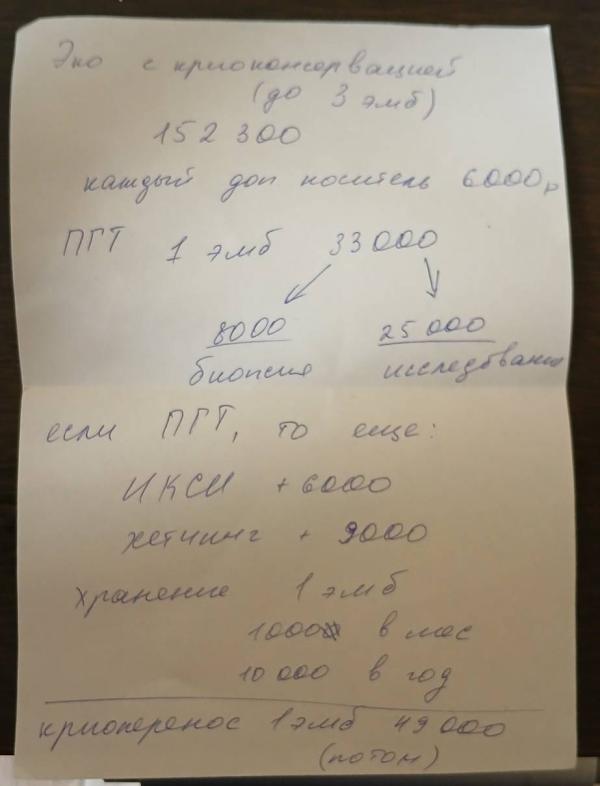 Эко с криоконсервацией
(до 3 эмб)
152 300
каждый доп носитель 6000р
ПГТ 1 эмб 33 000
8000 25 000
биопсия исследования
если ПГТ, то еще:
ИКСИ + 6000
хетчинг + 9000
хранение 1 эмб
1000 в мес
10 000 в год
криоперенос 1 эмб 49 000
(потом)